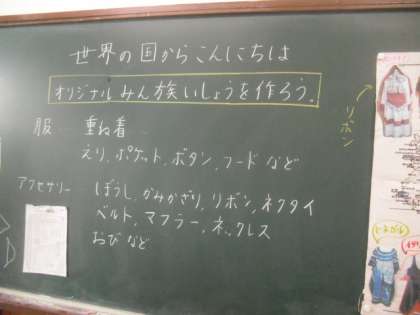 世界の国からこんにちは
オリジナルみん族いしょうを作ろう。
服… 重ね着…
えり、ポケット、ボタン、フードなど
アクセサリー ぼうし、かみかざり、リボン、ネクタイ
ベルト、マフラー、ネックレス
おびなど
リボン